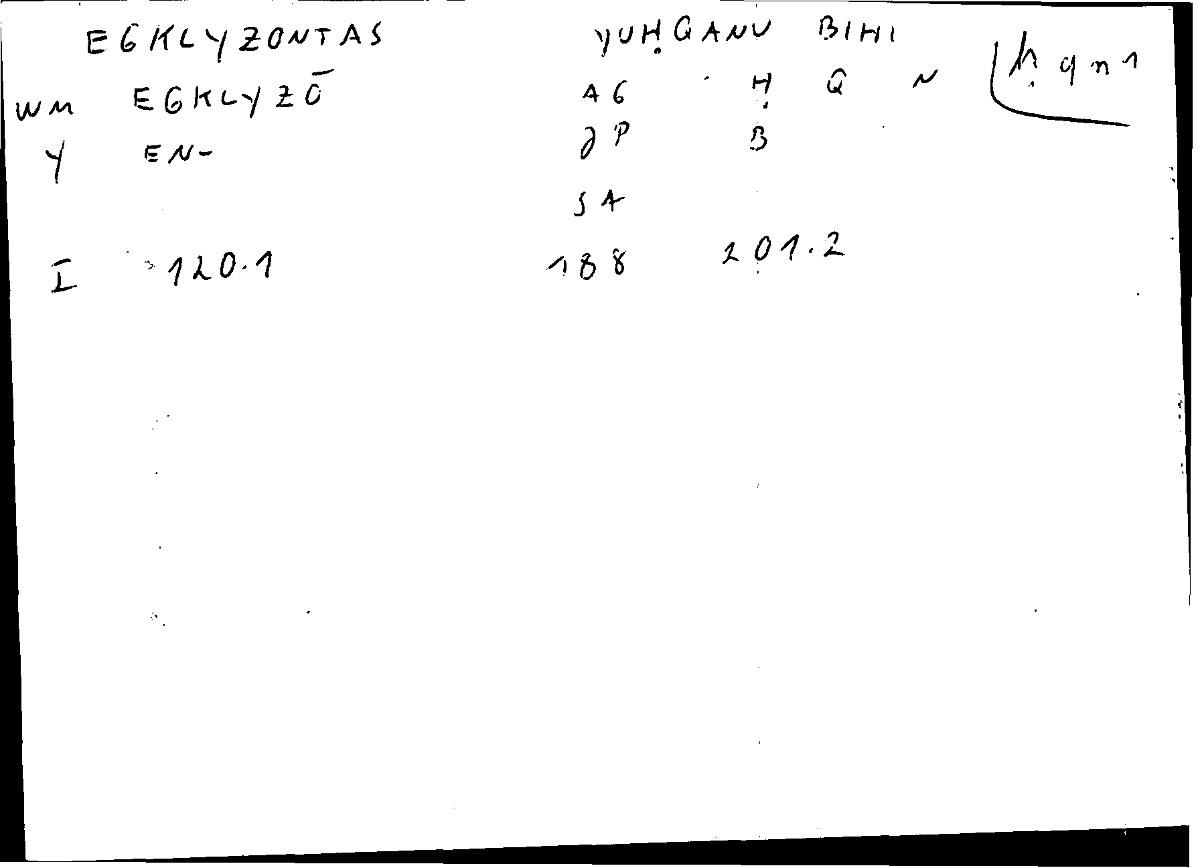 EGKLYZONTAS YUḤQANU BIHI
WM EGKLYZŌ AG Ḥ Q N ḥqn1
Y EN- JP B
SA
I 120.1 188 201.2